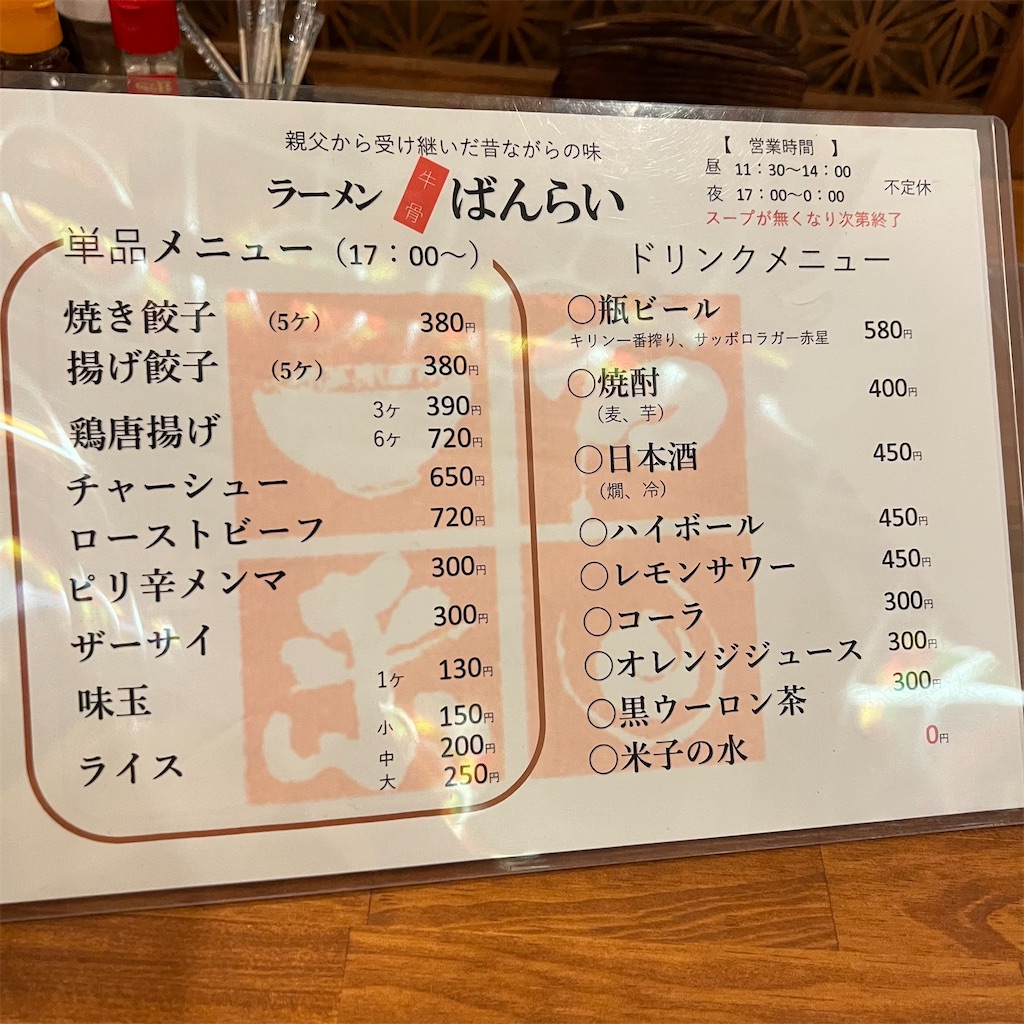 親父から受け継いだ昔ながらの味
ラーメン 牛骨 ばんらい
【 営業時間 】
昼 11:30～14:00
夜 17:00～0:00
不定休
スープが無くなり次第終了
単品メニュー(17:00～)
焼き餃子 (5ケ) 380円
揚げ餃子 (5ケ) 380円
鶏唐揚げ 3ケ 390円
6ケ 720円
チャーシュー 650円
ローストビーフ 720円
ピリ辛メンマ 300円
ザーサイ 300円
味玉 1ケ 130円
ライス 小 150円
中 200円
大 250円
ドリンクメニュー
○瓶ビール 580円
キリン一番搾り、サッポロラガー赤星
○焼酎 400円
(麦、芋)
○日本酒 450円
(燗、冷)
○ハイボール 450円
○レモンサワー 450円
○コーラ 300円
○オレンジジュース 300円
○黒ウーロン茶 300円
○米子の水 0円